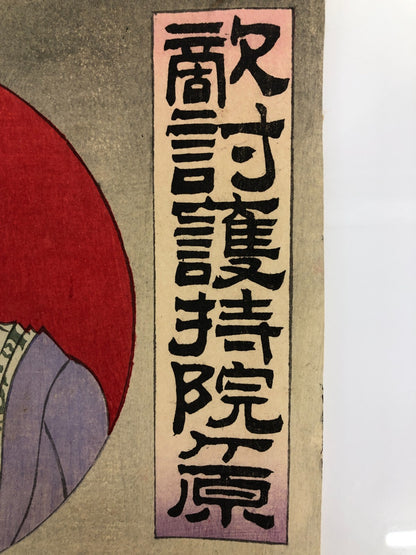 敵討護持院ヶ原